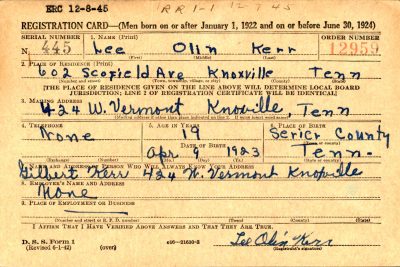 ERC 12-8-45
REGISTRATION CARD—(Men born on or after January 1, 1922 and on or before June 30, 1924)
SERIAL NUMBER 1. NAME (Print) ORDER NUMBER
445 Lee Olin Kerr 12959
(First) (Middle) (Last)
2. PLACE OF RESIDENCE (Print)
602 Scofield Ave Knoxville Tenn
(Number and street) (Town, township, village, or city) (County) (State)
[THE PLACE OF RESIDENCE GIVEN ON THE LINE ABOVE WILL DETERMINE LOCAL BOARD
JURISDICTION; LINE 2 OF REGISTRATION CERTIFICATE WILL BE IDENTICAL]
3. MAILING ADDRESS
424 W. Vermont Knoville, Tenn
4. TELEPHONE 5. AGE IN YEARS 6. PLACE OF BIRTH
None 19 Sevier County
DATE OF BIRTH
Apr 9 1923 Tenn.
(Mo.) (Day) (Yr.)
7. NAME AND ADDRESS OF PERSON WHO WILL ALWAYS KNOW YOUR ADDRESS
Gilbert Kerr 424 W. Vermont Knopville
8. EMPLOYER'S NAME AND ADDRESS
None
9. PLACE OF EMPLOYMENT OR BUSINESS
(Number and street or R. F. D. number) (Town) (County) (State)
I AFFIRM THAT I HAVE VERIFIED ABOVE ANSWERS AND THAT THEY ARE TRUE.
D. S. S. Form 1
(Revised 6-1-42) (over) Lee Olin Kerr
(Registrant's signature)